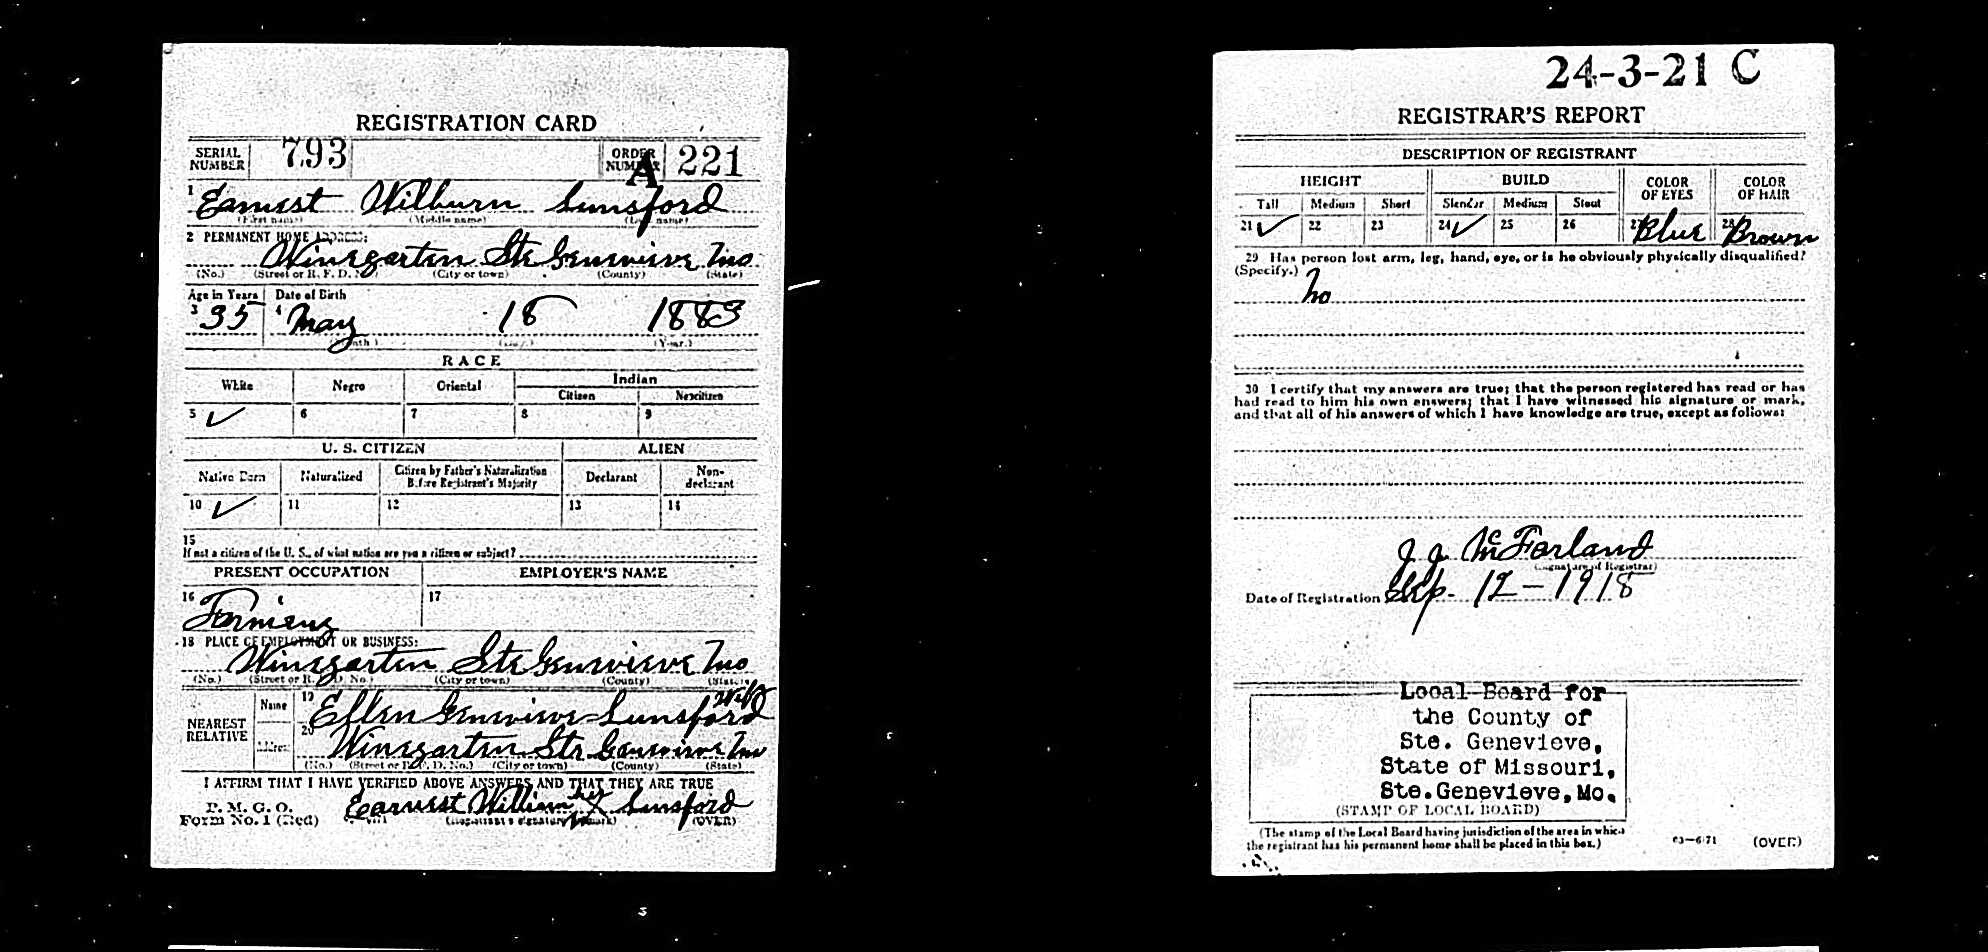 REGISTRATION CARD
SERIAL NUMBER 793 ORDER NUMBER A 221
1 Earnest Wilburn Lunsford
(First name) (Middle name) (Last name)
2 PERMANENT HOME ADDRESS:
Winegarten Ste Genevieve Mo
(No.) (Street or R. F. D. No.) (City or town) (County) (State)
Age in Years Date of Birth
3 35 4 May 18 1883
(Month.) (Day.) (Year.)
RACE
White Negro Oriental Indian
Citizen Noncitizen
5 ✓ 6 7 8 9
U. S. CITIZEN ALIEN
Native Born Naturalized Citizen by Father's Naturalization Before Registrant's Majority Declarant Non-declarant
10 ✓ 11 12 13 14
15
If not a citizen of the U. S., of what nation are you a citizen or subject?
PRESENT OCCUPATION EMPLOYER'S NAME
16 Farming 17
18 PLACE OF EMPLOYMENT OR BUSINESS:
Winegarten Ste Genevieve Mo
(No.) (Street or R. F. D. No.) (City or town) (County) (State)
NEAREST RELATIVE Name 19 Ellen Genevieve Lunsford Wife
Address 20 Winegarten Ste Genevieve Mo
(No.) (Street or R. F. D. No.) (City or town) (County) (State)
I AFFIRM THAT I HAVE VERIFIED ABOVE ANSWERS AND THAT THEY ARE TRUE
P. M. G. O.
Form No. 1 (Red) Earnest William his X Lunsford
(Registrant's signature or mark) (OVER)
24-3-21 C
REGISTRAR'S REPORT
DESCRIPTION OF REGISTRANT
HEIGHT BUILD COLOR OF EYES COLOR OF HAIR
Tall Medium Short Slender Medium Stout
21 ✓ 22 23 24 ✓ 25 26 27 Blue 28 Brown
29 Has person lost arm, leg, hand, eye, or is he obviously physically disqualified?
(Specify.)
No
30 I certify that my answers are true; that the person registered has read or has
had read to him his own answers; that I have witnessed his signature or mark,
and that all of his answers of which I have knowledge are true, except as follows:
J J McFarland
(Signature of Registrar)
Date of Registration Sep. 12-1918
Local Board for
the County of
Ste. Genevieve,
State of Missouri,
Ste.Genevieve,Mo.
(STAMP OF LOCAL BOARD)
(The stamp of the Local Board having jurisdiction of the area in which
the registrant has his permanent home shall be placed in this box.)
03—6171 (OVER)